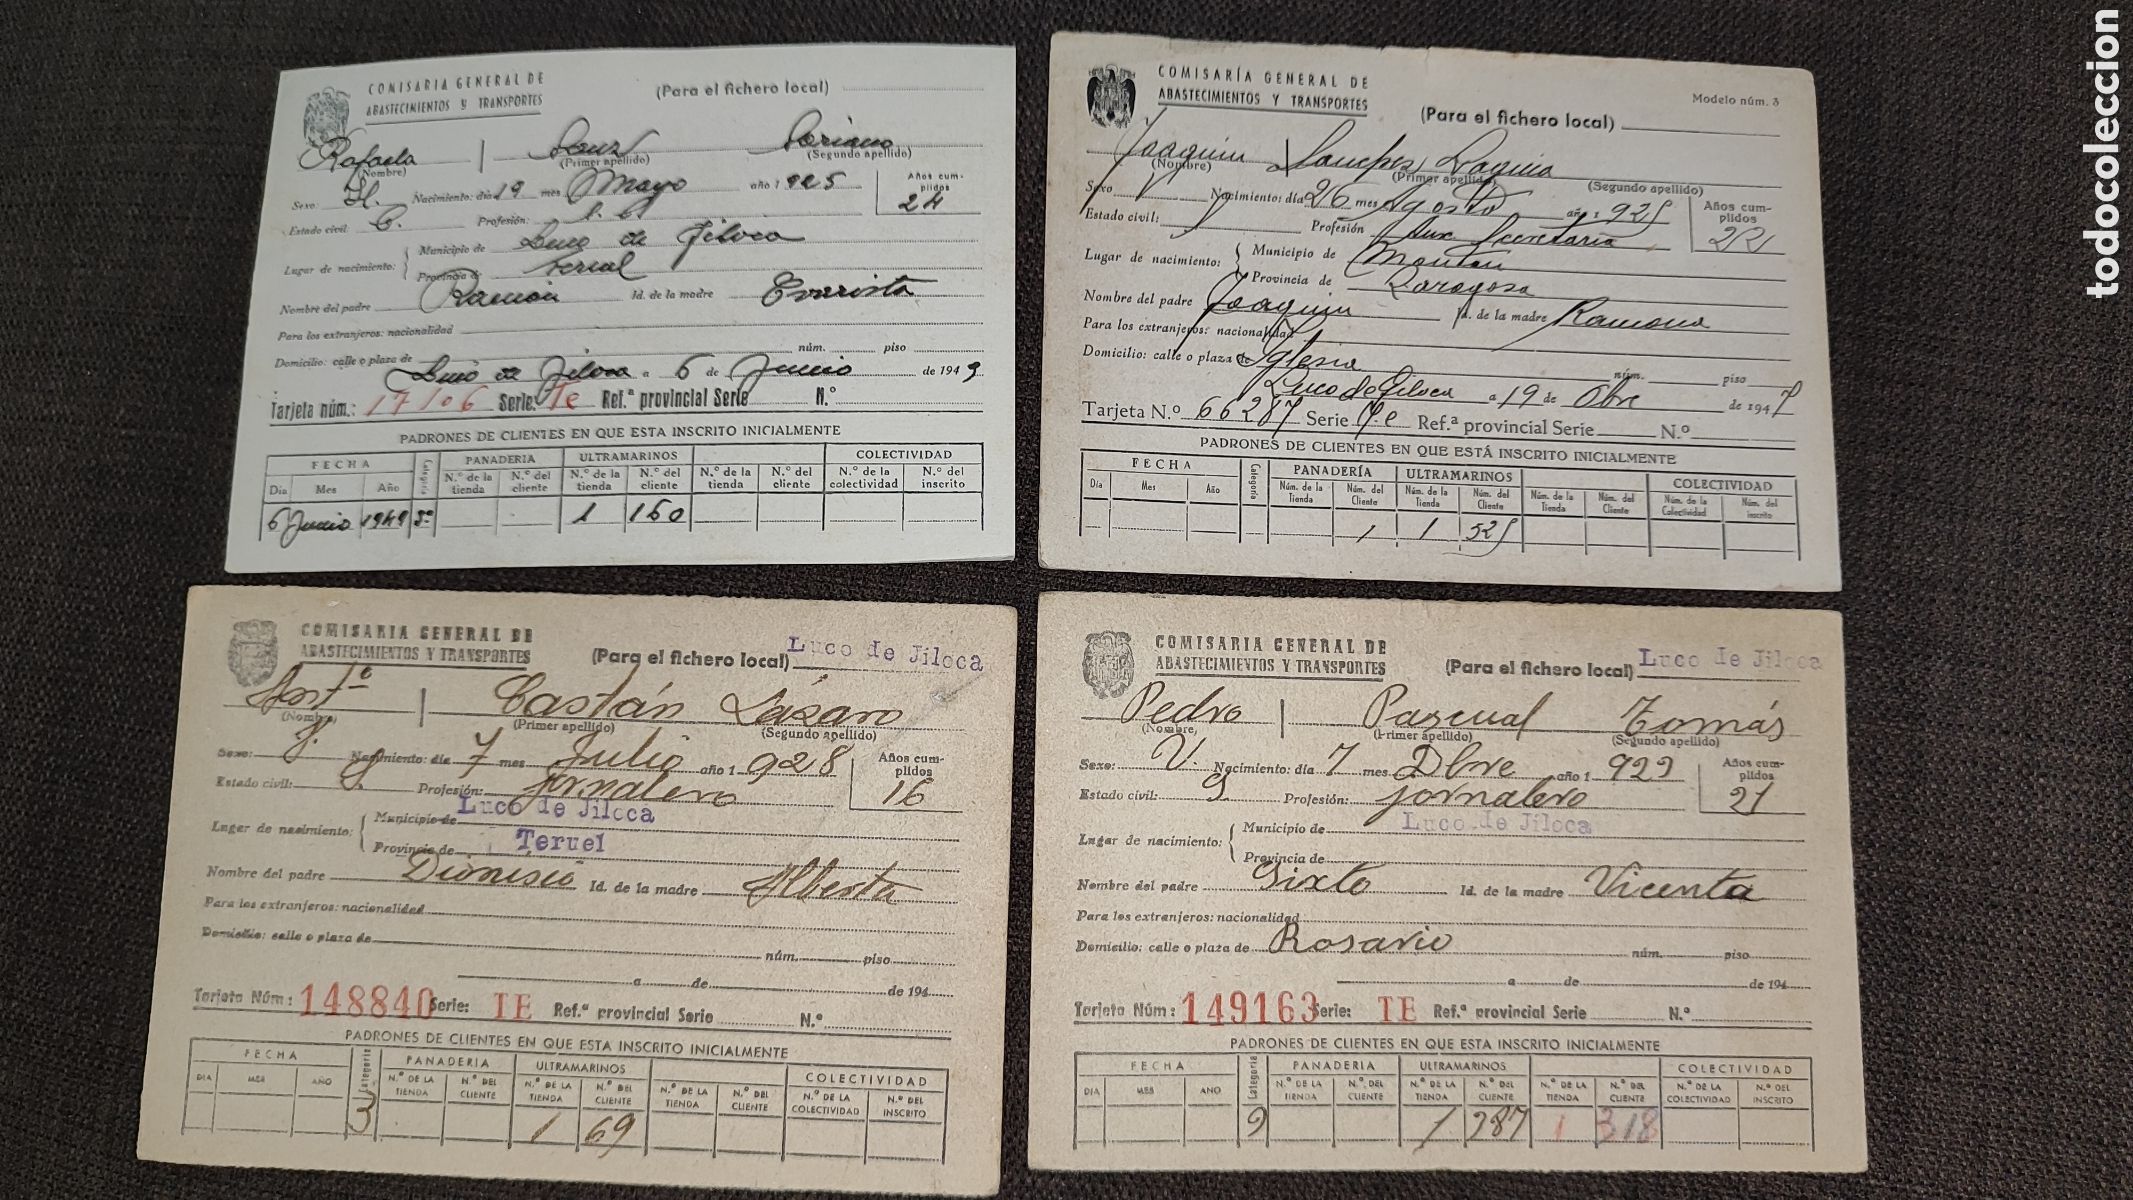 COMISARIA GENERAL DE
ABASTECIMIENTOS y TRANSPORTES
(Para el fichero local)
Rafaela Sanz Soriano
(Nombre) (Primer apellido) (Segundo apellido)
Sexo: H. Nacimiento: día 19 mes Mayo año 1 925 Años cum-
plidos
24
Estado civil C. Profesión: S. L.
Lugar de nacimiento: Municipio de Luco de Jiloca
Provincia de Teruel
Nombre del padre Ramón Id. de la madre Evarista
Para los extranjeros: nacionalidad
Domicilio: calle o plaza de núm. piso
Luco de Jiloca a 6 de Junio de 1949
Tarjeta núm.: 17106 Serie: Te Ref.ª provincial Serie N.º
PADRONES DE CLIENTES EN QUE ESTA INSCRITO INICIALMENTE
FECHA Categoría PANADERIA ULTRAMARINOS COLECTIVIDAD
Día Mes Año N.º de la tienda N.º del cliente N.º de la tienda N.º del cliente N.º de la tienda N.º del cliente N.º de la colectividad N.º del inscrito
6 Junio 1949 3ª 1 160
COMISARÍA GENERAL DE
ABASTECIMIENTOS Y TRANSPORTES
Modelo núm. 3
(Para el fichero local)
Joaquin Sanchez
(Nombre) (Primer apellido) (Segundo apellido)
Sexo V Nacimiento: día 26 mes Agosto año 1 925 Años cum-
plidos
Estado civil: Profesión Aux. Secretaria
Lugar de nacimiento: Municipio de
Provincia de Zaragoza
Nombre del padre Joaquin Id. de la madre Ramona
Para los extranjeros: nacionalidad
Domicilio: calle o plaza de Iglesia núm. piso
Luco de Jiloca a 19 de Obre de 1947
Tarjeta N.º 66287 Serie Te Ref.ª provincial Serie N.º
PADRONES DE CLIENTES EN QUE ESTÁ INSCRITO INICIALMENTE
FECHA Categoría PANADERÍA ULTRAMARINOS COLECTIVIDAD
Día Mes Año Núm. de la Tienda Núm. del Cliente Núm. de la Tienda Núm. del Cliente Núm. de la Tienda Núm. del Cliente Núm. de la Colectividad Núm. del inscrito
1 1 525
COMISARIA GENERAL DE
ABASTECIMIENTOS Y TRANSPORTES
(Para el fichero local) Luco de Jiloca
Antº Castán Lázaro
(Nombre) (Primer apellido) (Segundo apellido)
Sexo: Nacimiento: día 7 mes Julio año 1 928 Años cum-
plidos
16
Estado civil: Profesión: jornalero
Lugar de nacimiento: Municipio de Luco de Jiloca
Provincia de Teruel
Nombre del padre Dionisio Id. de la madre Alberta
Para los extranjeros: nacionalidad
Domicilio: calle o plaza de
núm. piso
a de de 194
Tarjeta Núm: 148840 Serie: TE Ref.ª provincial Serie N.º
PADRONES DE CLIENTES EN QUE ESTA INSCRITO INICIALMENTE
FECHA Categoría PANADERIA ULTRAMARINOS COLECTIVIDAD
DIA MES AÑO N.º DE LA TIENDA N.º DEL CLIENTE N.º DE LA TIENDA N.º DEL CLIENTE N.º DE LA TIENDA N.º DEL CLIENTE N.º DE LA COLECTIVIDAD N.º DEL INSCRITO
3 1 69
COMISARIA GENERAL DE
ABASTECIMIENTOS Y TRANSPORTES
(Para el fichero local) Luco de Jiloca
Pedro Pascual Tomás
(Nombre) (Primer apellido) (Segundo apellido)
Sexo: V. Nacimiento: día 7 mes Dbre año 1 923 Años cum-
plidos
21
Estado civil: S. Profesión: jornalero
Lugar de nacimiento: Municipio de Luco de Jiloca
Provincia de
Nombre del padre Sixto Id. de la madre Vicenta
Para los extranjeros: nacionalidad
Domicilio: calle o plaza de Rosario núm. piso
a de de 194
Tarjeta Núm: 149163 Serie: TE Ref.ª provincial Serie N.º
PADRONES DE CLIENTES EN QUE ESTA INSCRITO INICIALMENTE
FECHA Categoría PANADERIA ULTRAMARINOS COLECTIVIDAD
DIA MES AÑO N.º DE LA TIENDA N.º DEL CLIENTE N.º DE LA TIENDA N.º DEL CLIENTE N.º DE LA TIENDA N.º DEL CLIENTE N.º DE LA COLECTIVIDAD N.º DEL INSCRITO
1 387 1 318
todocoleccion